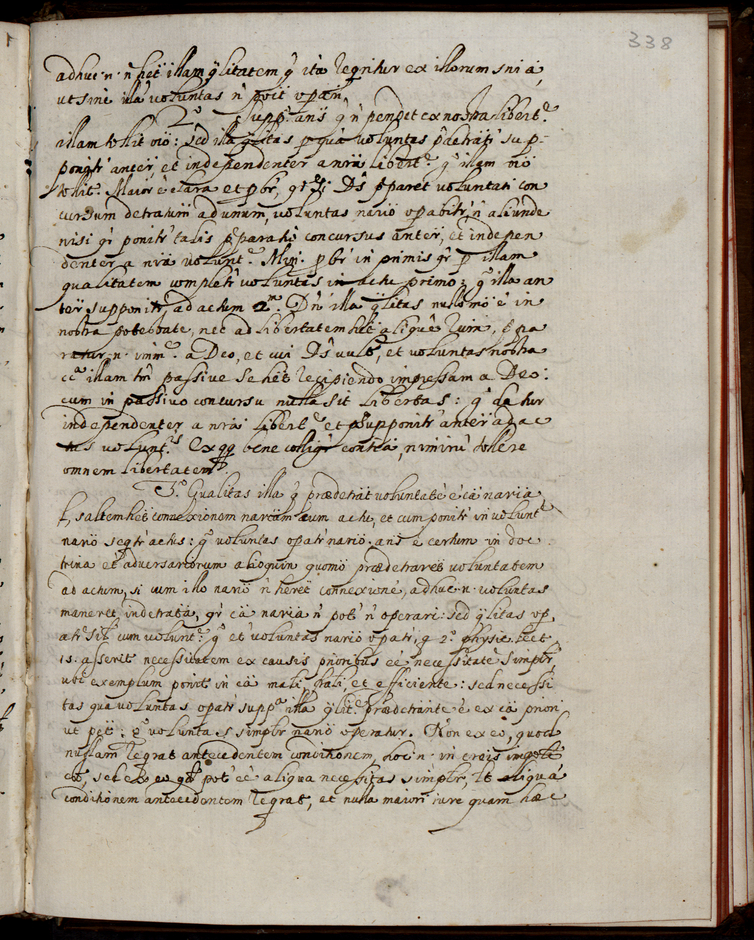 338
adhuc n. n̄ het illam q̄litatem, q̄ ita reqritur ex illorum snīā,
ut sine illa voluntas n̄ poīt opari
2º supp. ans q n̄ pendet ex nostra libert.e
illam tollit oīo: sed illa q̄litas p quā voluntas p̄detratr sup-
ponitr anter, et independenter a nrā libert.e gº illam oīo
tollit. Maior ē clara et pbr, Ds pparet voluntati con
cursum detratum ad unum, voluntas nariō opabitr, n̄ aliunde
nisi qr ponitr talis pparatio concursus anter, et indepen
denter a nrā volunt.e Min. pbr in primis qr p illam
qualitatem completr voluntas in actu primo, gº illa an
ter supponitr ad actum 2m. Dn̄ illa q̄litas nullo mō ē in
nostra potestate, nec ad libertatem het aliquē, pa
ratur n. imm.e a Deo, et cui Ds vult, et voluntas nostra
cā illam tm̄ passive se het recipiendo impressam a Deo:
cum in passivo concursu nulla sit libertas: gº datur
independenter a nrā libert.e et psupponitr anter ad ac
tus volunt.s Ex qq bene colligr contra, nimirū tollere
omnem libertatem.
3º Qualitas illa q̄ prædetrat voluntatē ē cā naria,
l, saltem het connexionem nariam cum actu, et cum ponitr in volunt.e
nariō seqtr actus: gº voluntas opatr nariō. ans ē certum in doc
trina et adversariorum alioquin quomō prædetraret voluntatem
ad actum, si cum illo nariō n̄ heret connexionē, adhuc n. voluntas
maneret indetrata, qr cā naria n̄ pot n̄ operari: sed q̄litas op
atr sil cum volunt.e gº et voluntas nariō opatr, q 2º physic. text
15. asserit necessitatem ex causis prioribus eē necessitatē simplr,
ubi exemplum ponit in cā mali, frali, et efficiente: sed necessi
tas qua voluntas opatr supp. illa q̄lit.e prædetrante ē ex cā priori
ut pet: gº voluntas simplr nariō operatur. Non ex eo, quod
nullam reqrat antecedentem conditionem, hoc n. in creis
est, sed ex eo pot eē aliqua necessitas simplr, aliquā
conditionem antecedentem reqrat, et nulla maiori iure quam hæc